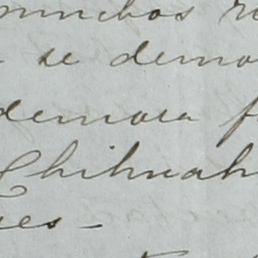 muchos
se demo
demora f
Chihuah
es -